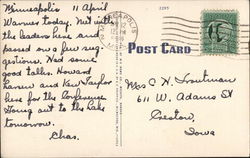 Minneapolis 11 April
Warmer today. Met with
the leaders here and
passed on a few sug-
gestions. Had some
good talks. Howard
Larson and Kew Taylor
here for the Conference
Going out to the Lake
tomorrow.
Chas.
MINNEAPOLIS
2295
POST CARD
Mrs C H. Troutman
611 W. Adams St
Creston,
Iowa